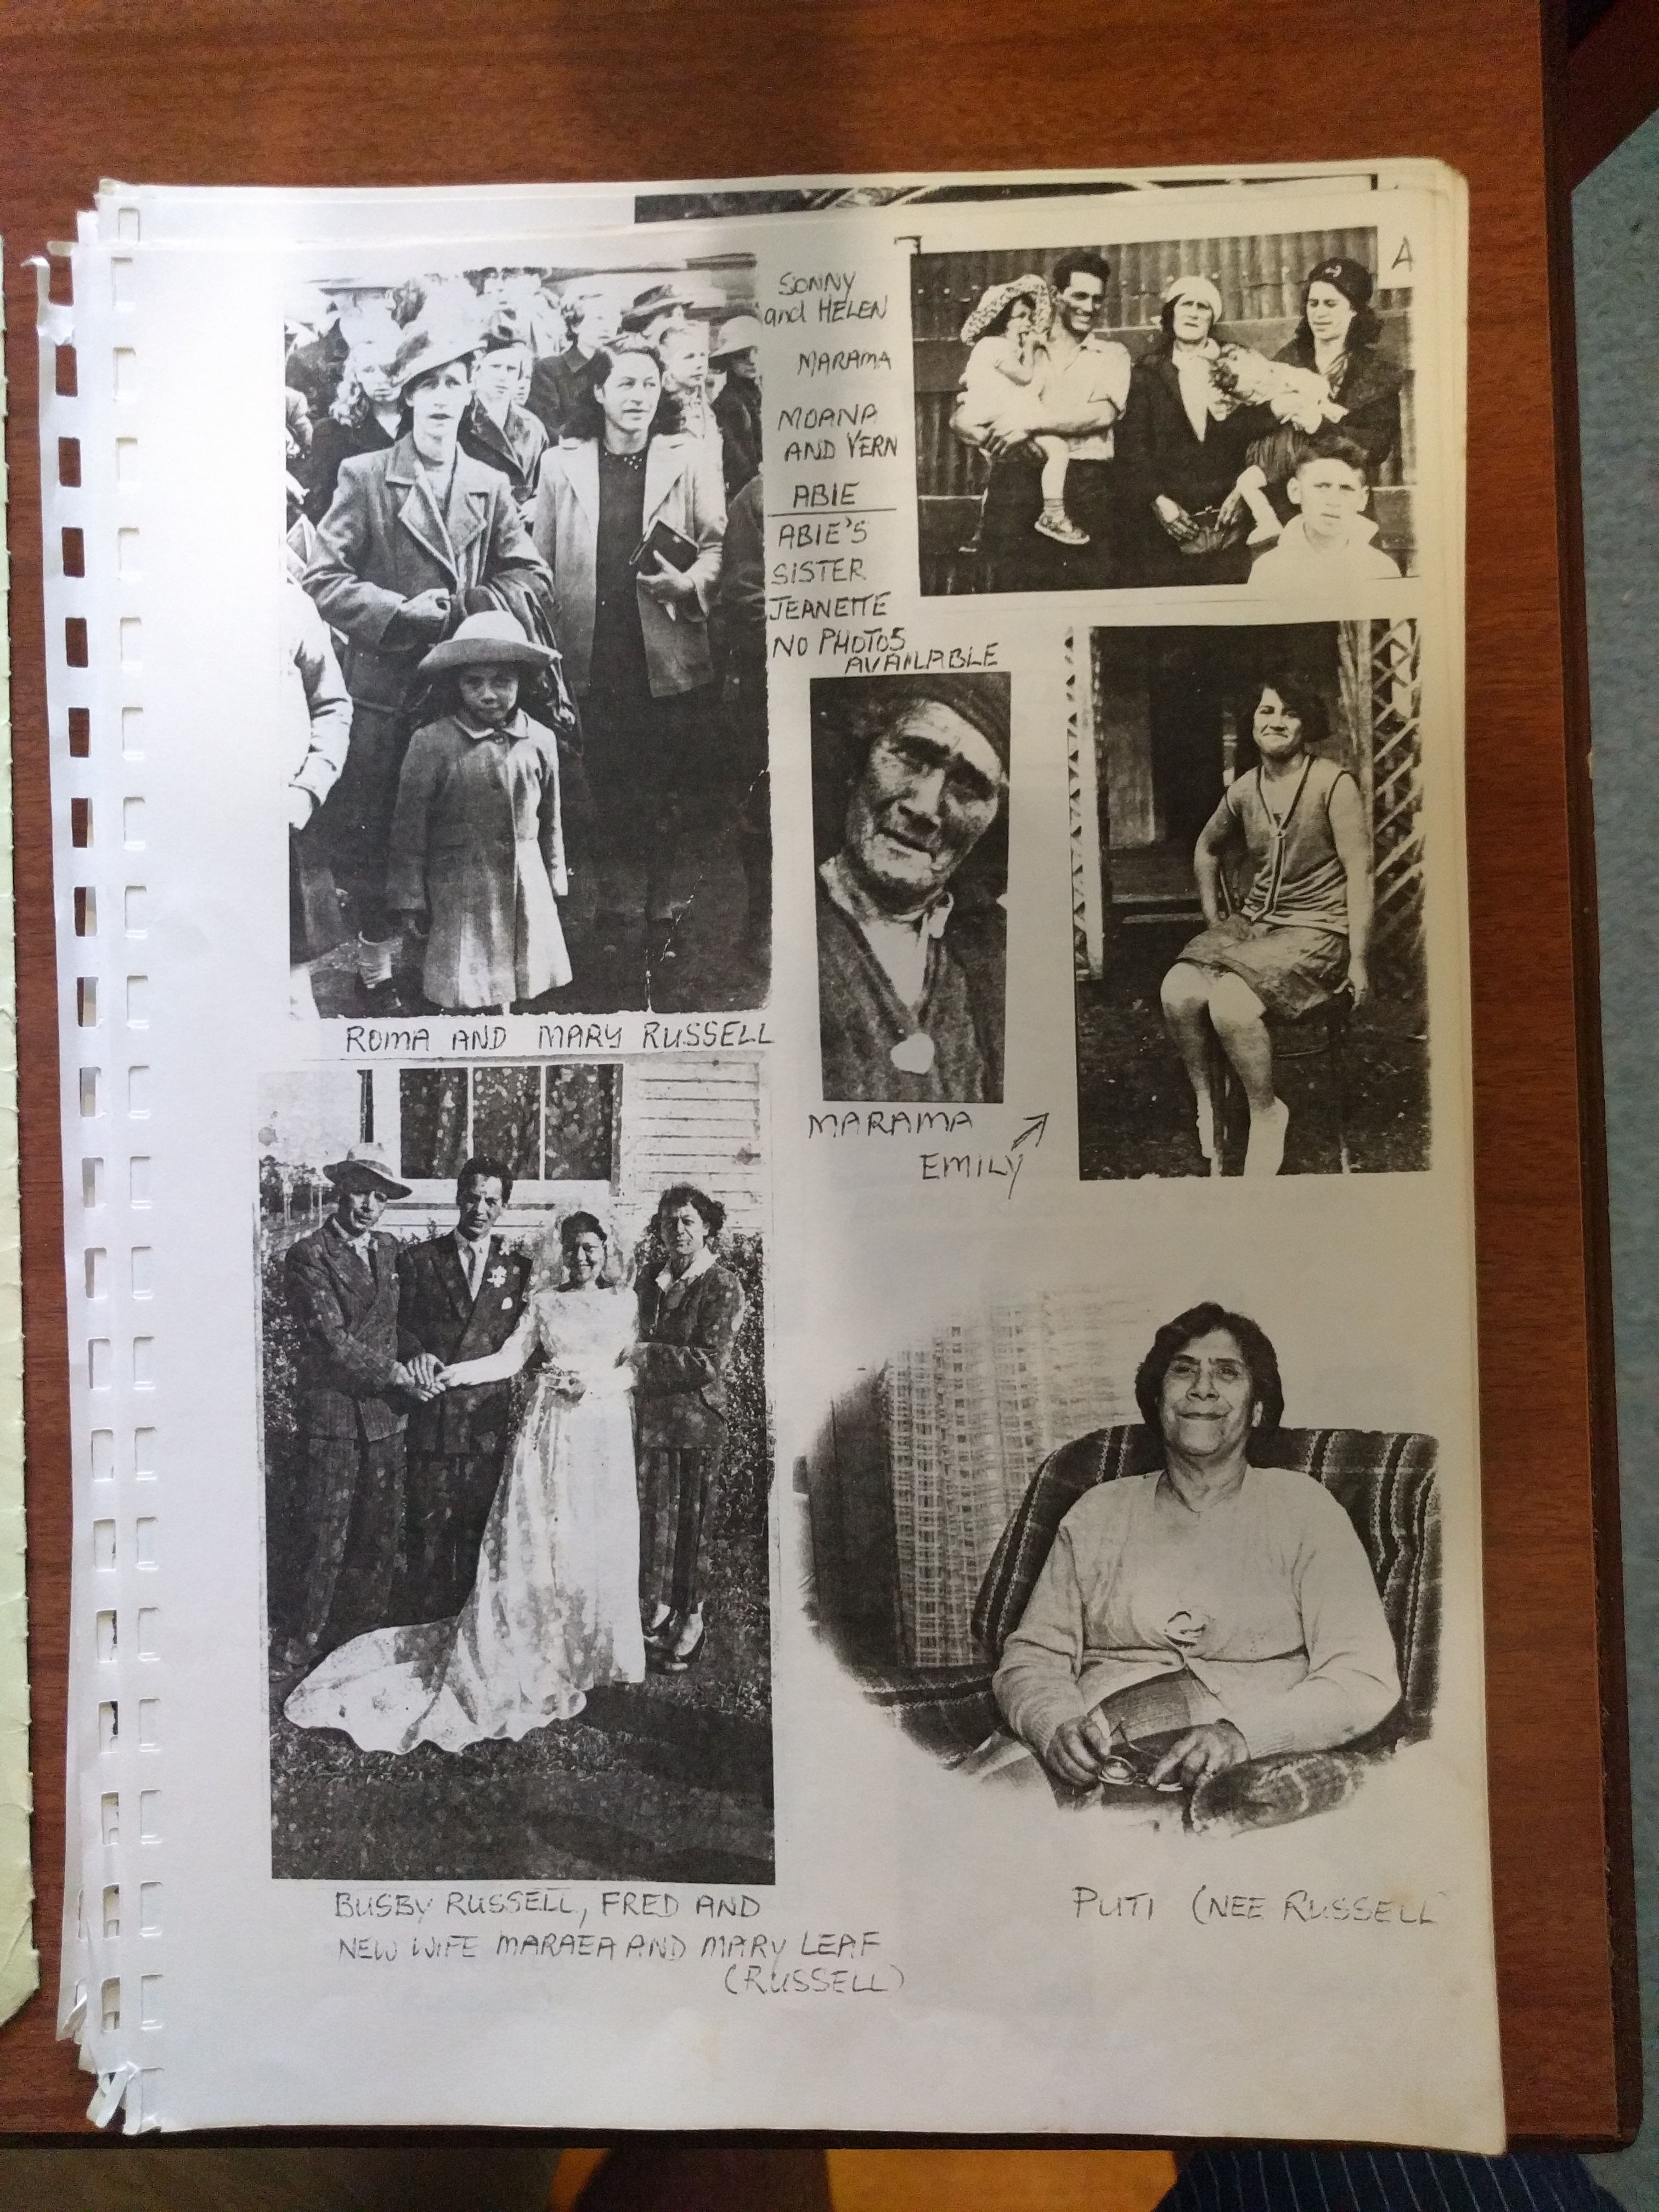 SONNY
and HELEN
MARAMA
MOANA
AND VERN
ABIE
ABIE'S
SISTER
JEANETTE
NO PHOTOS
AVAILABLE
A
ROMA AND MARY RUSSELL
MARAMA
EMILY
BUSBY RUSSELL, FRED AND
NEW WIFE MARAEA AND MARY LEAF
(RUSSELL)
PUTI (NEE RUSSELL